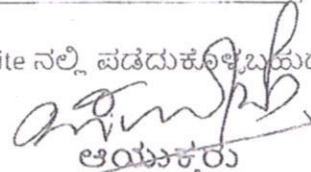 ite ನಲ್ಲಿ ಪಡೆದುಕೊಳ್ಳಬಹುದ
ಆಯುಕ್ತರು